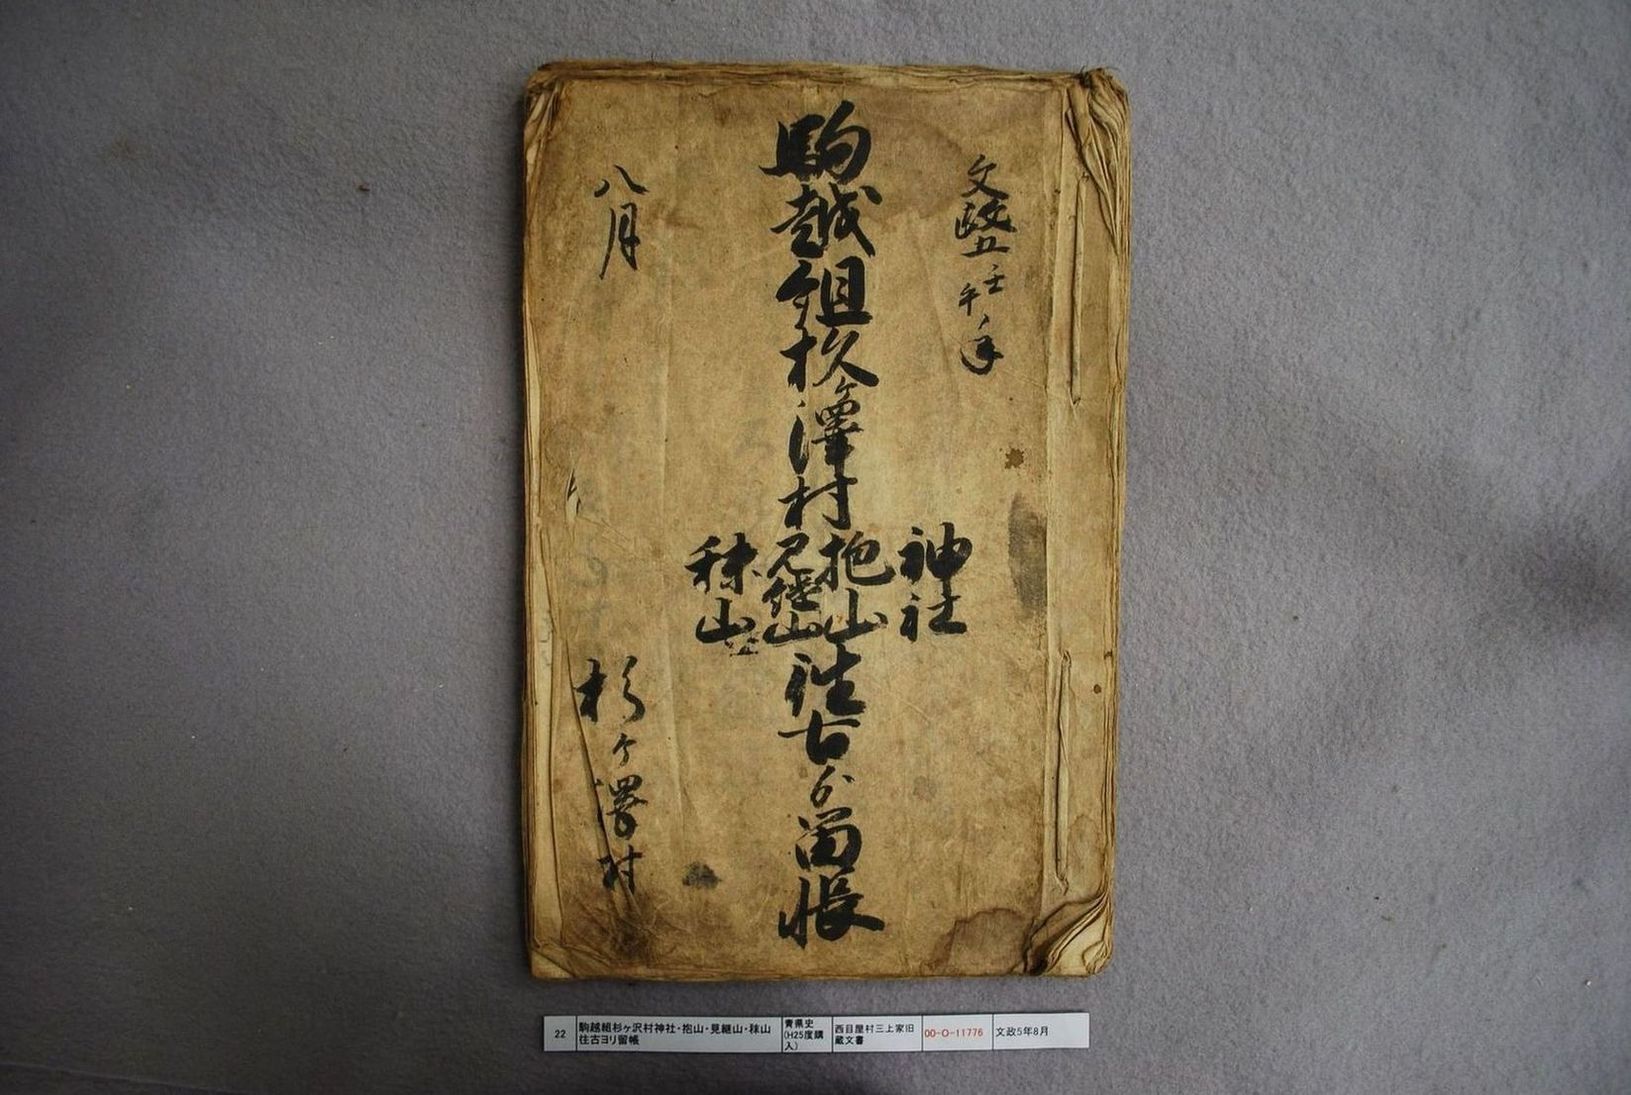 文政五壬午年
駒越組杦ケ澤村
神社
抱山
見継山
秣山
往古ゟ留帳
八月
杉ケ澤村
22
駒越組杉ヶ沢村神社・抱山・見継山・秣山
往古ヨリ留帳
青県史
(H25度購
入)
西目屋村三上家旧
蔵文書
00-O-11776
文政5年8月